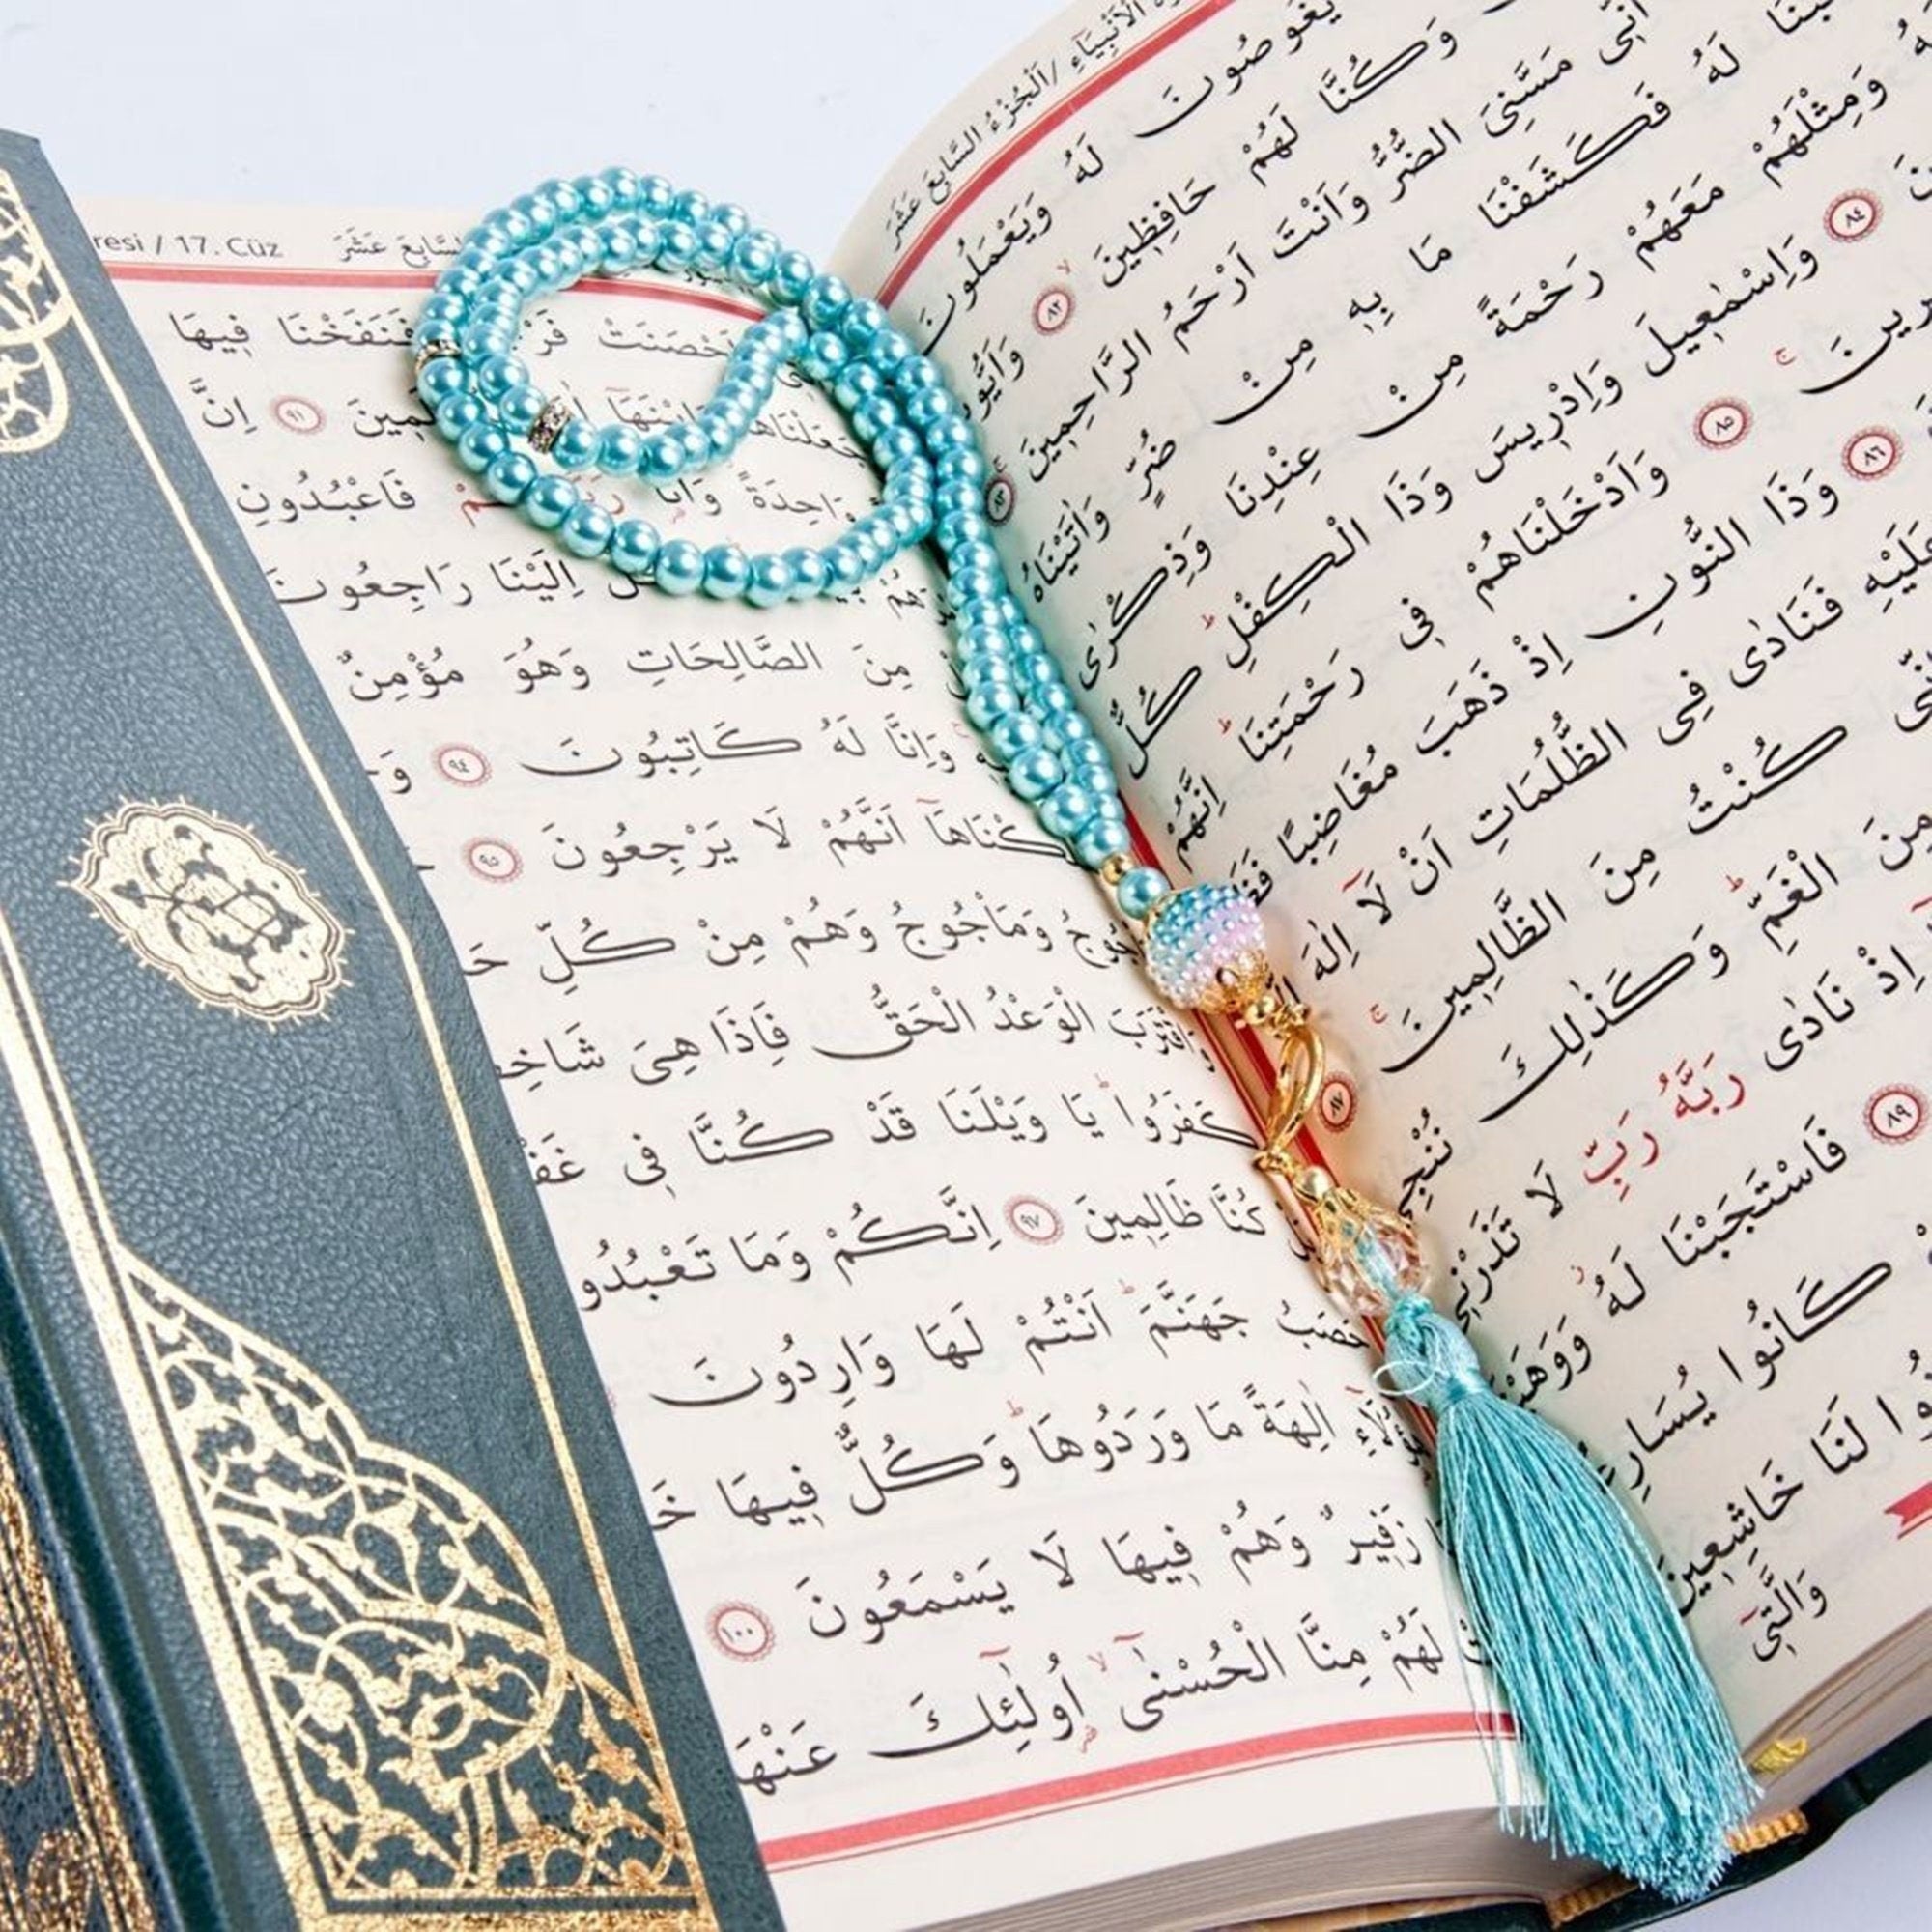 الْاَنْبِيَاءِ / اَلْجُزْءُ السَّابِعَ عَشَرَ
يَغُوصُونَ لَهُ وَيَعْمَلُونَ
وَكُنَّا لَهُمْ حَافِظِينَ ٨٢ وَاَيُّو
اَنِّى مَسَّنِىَ الضُّرُّ وَاَنْتَ اَرْحَمُ الرَّاحِمِينَ ٨٣
لَهُ فَكَشَفْنَا مَا بِهِ مِنْ ضُرٍّ وَاٰتَيْنَاهُ
وَمِثْلَهُمْ مَعَهُمْ رَحْمَةً مِنْ عِنْدِنَا وَذِكْرٰى
٨٤ وَاِسْمٰعِيلَ وَاِدْرِيسَ وَذَا الْكِفْلِ كُلٌّ
٨٥ وَاَدْخَلْنَاهُمْ فِى رَحْمَتِنَا اِنَّهُمْ
٨٦ وَذَا النُّونِ اِذْ ذَهَبَ مُغَاضِبًا فَظَ
عَلَيْهِ فَنَادٰى فِى الظُّلُمَاتِ اَنْ لَآ اِلٰهَ
كُنْتُ مِنَ الظَّالِمِينَ ٨٧
مِنَ الْغَمِّ وَكَذٰلِكَ نُنْجِى
اِذْ نَادٰى رَبَّهُ رَبِّ لَا تَذَرْنِى
٨٩ فَاسْتَجَبْنَا لَهُ وَوَهَبْ
كَانُوا يُسَارِعُ
وا لَنَا خَاشِعِينَ
وَالَّتِى
resi / 17. Cüz السَّابِعَ عَشَرَ
اَحْصَنَتْ فَرْ فَنَفَخْنَا فِيهَا
جَعَلْنَاهَا وَابْنَهَآ لَمِينَ ٩١ اِنَّ
وَاحِدَةً وَاَنَا فَاعْبُدُونِ
اِلَيْنَا رَاجِعُونَ
مِنَ الصَّالِحَاتِ وَهُوَ مُؤْمِنٌ
وَاِنَّا لَهُ كَاتِبُونَ ٩٤ وَحَ
كْنَاهَآ اَنَّهُمْ لَا يَرْجِعُونَ ٩٥
جُوجُ وَمَاْجُوجُ وَهُمْ مِنْ كُلِّ حَ
وَاقْتَرَبَ الْوَعْدُ الْحَقُّ فَاِذَا هِىَ شَاخِصَ
كَفَرُوا يَا وَيْلَنَا قَدْ كُنَّا فِى غَفْ
كُنَّا ظَالِمِينَ ٩٧ اِنَّكُمْ وَمَا تَعْبُدُو
حَصَبُ جَهَنَّمَ اَنْتُمْ لَهَا وَارِدُونَ
ؤُلَآءِ اٰلِهَةً مَا وَرَدُوهَا وَكُلٌّ فِيهَا خَ
زَفِيرٌ وَهُمْ فِيهَا لَا يَسْمَعُونَ ١٠٠
لَهُمْ مِنَّا الْحُسْنٰىٓ اُولٰٓئِكَ عَنْهَا